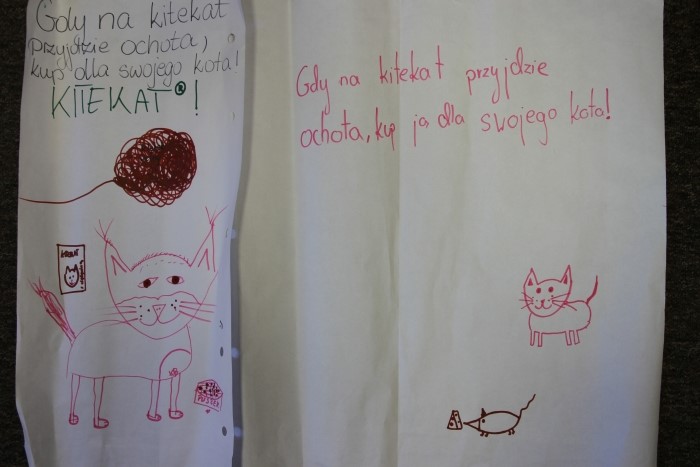 Gdy na kitekat
przyjdzie ochota,
kup dla swojego kota!
KITEKAT®!
Gdy na kitekat przyjdzie
ochota, kup ja dla swojego kota!